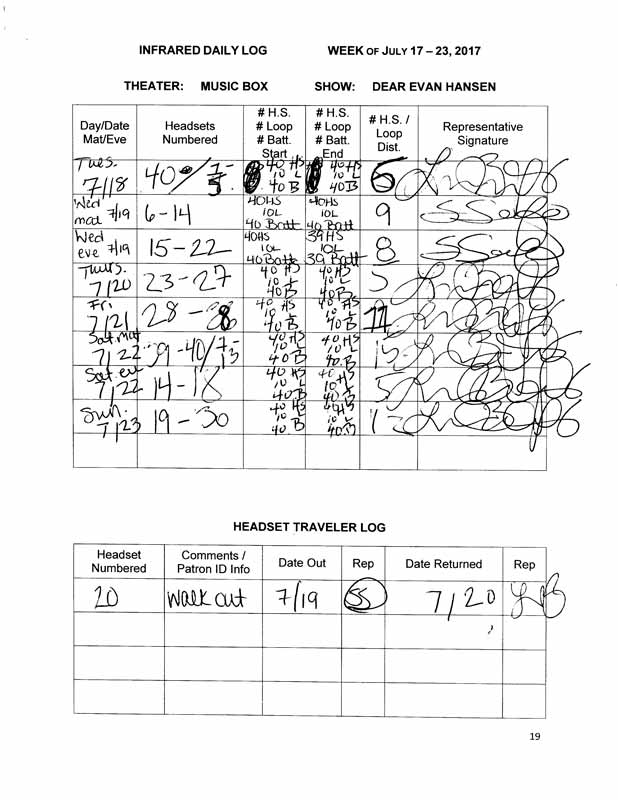 INFRARED DAILY LOG WEEK OF JULY 17 – 23, 2017
THEATER: MUSIC BOX SHOW: DEAR EVAN HANSEN
Day/Date Mat/Eve Headsets Numbered # H.S. # Loop # Batt. Start # H.S. # Loop # Batt. End # H.S. / Loop Dist. Representative Signature
Tues. 7/18 40 40 HS 10 L 40 B 40 HS 10 L 40 B
Wed mat 7/19 6-14 40HS 10L 40 Batt 40HS 10L 40 Batt 9
Wed eve 7/19 15-22 40HS 10L 40 Batts 39HS 10L 39 Batt 8
Thurs. 7/20 23-27 40 HS 10 L 40 B 40 HS 10 L 40 B 5
Fri 7/21 28 - 40 HS 10 L 40 B 40 HS 10 L 40 B 11
Sat. mat 7/22 39-40/ 40 HS 10 L 40 B 40 HS 10 L 40 B
Sat. eve 7/22 14-18 40 HS 10 L 40 B 40 HS 10 L 40 B 5
Sun. 7/23 19-30 40 HS 10 L 40 B 40 HS 10 L 40 B
HEADSET TRAVELER LOG
Headset Numbered Comments / Patron ID Info Date Out Rep Date Returned Rep
20 walk out 7/19 SS 7/20 LB
19